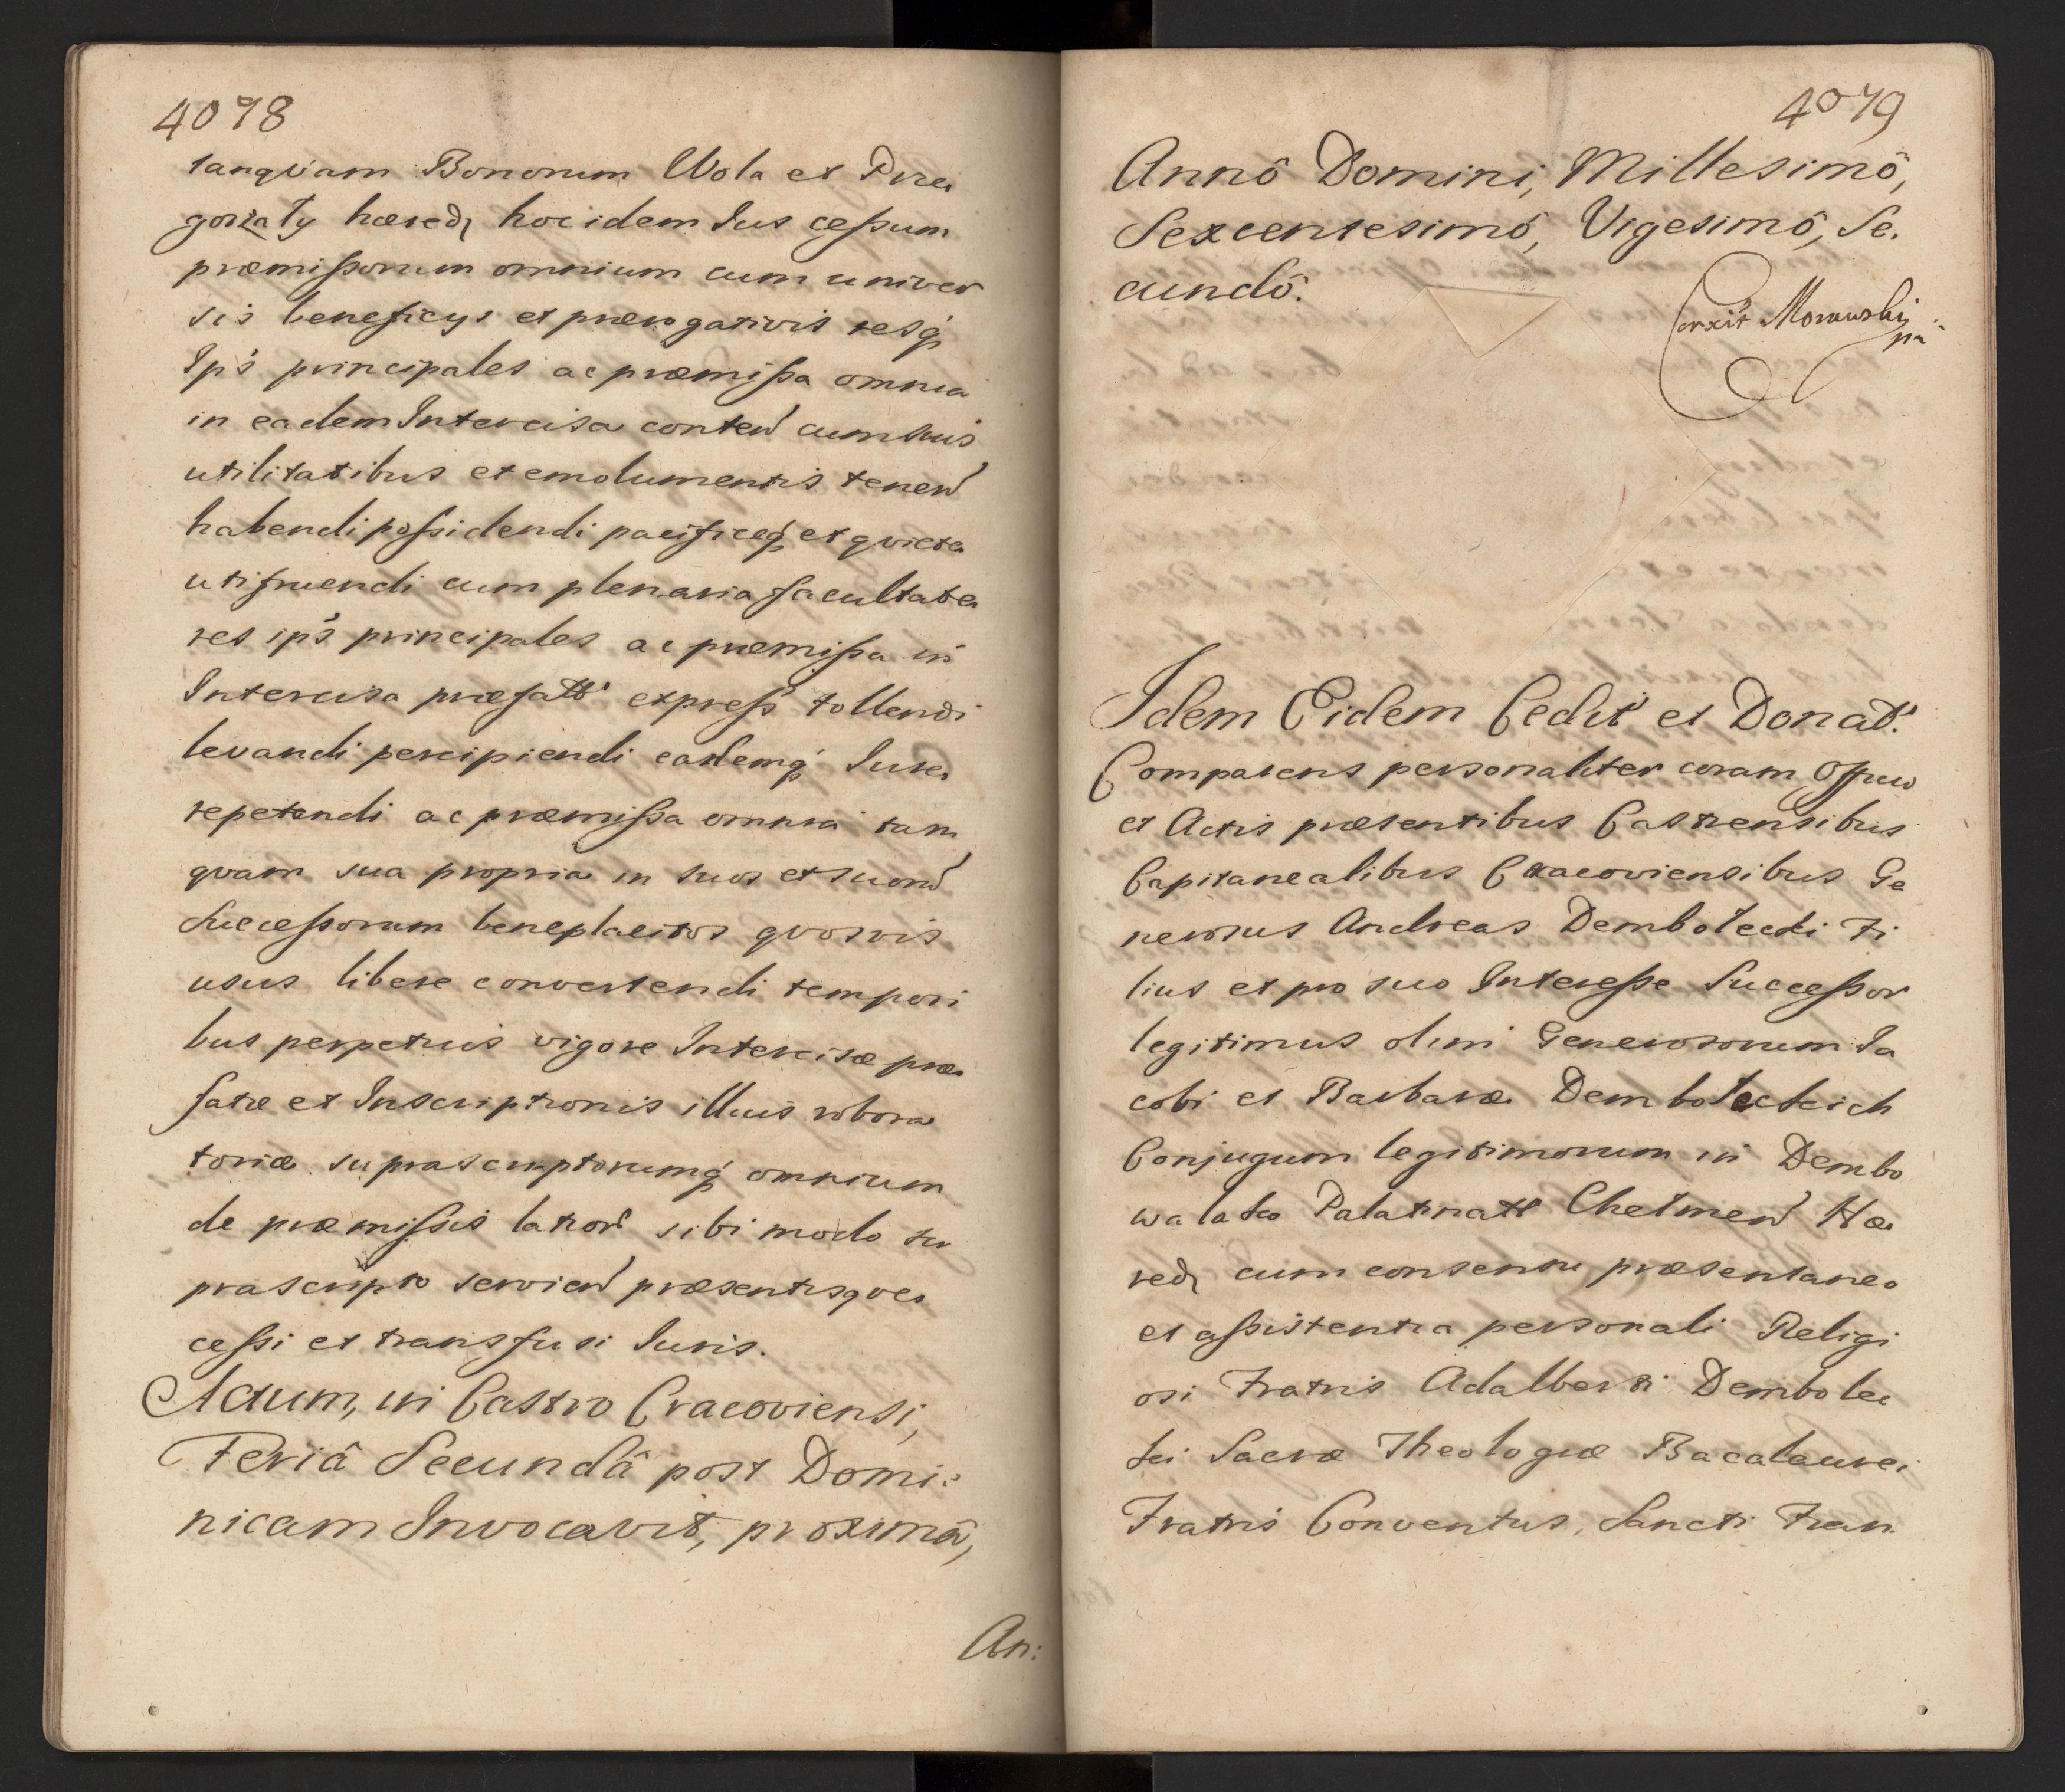 4078
tanqvam Bonorum Wola et Prze
gorzaty hæred, hoc idem Jus cessum
præmissorum omnium cum univer
sis beneficys et prærogativis resq́
Ips principales ac præmissa omnia
in eadem Intercisa conten̄ cum suis
utilitatibus et emolumentis tenen̄
habendi possidendi pacificeq́ et qviete
utifruendi cum plenaria facultate
res ips principales ac præmissa in
Intercisa præfatt express tollendi
levandi percipiendi eademq́ Jure
repetendi ac præmissa omnia tam
qvam sua propria in suos et suor̄
Successorum beneplacitos qvosvis
usus libere convertendi tempori
bus perpetuis vigore Intercisæ præ
fatæ et Inscriptionis illius robora
toriæ suprascriptorumq́ omnium
de præmissis lator̄ sibi modo su
prascripto servien̄ præsentisqve
cessi et transfusi Juris.
Actum, in Castro Cracoviensi,
Feriâ Secundâ post Domi:
nicam Invocavit, proximâ,
An:
4079
Annô Domini, Millesimô,
Sexcentesimô, Vigesimô, Se.
cundô.
Corexit Morawski
mp
Idem Eidem Cedit et Donat.
Comparens personaliter coram Officio
et Actis præsentibus Castrensibus
Capitanealibus Cracoviensibus Ge
nerosus Andreas Dembolecki Fi
lius et pro suo Interesse Successor
legitimus olim Generosorum Ja
cobi et Barbaræ Demboleckich
Conjugum legitimorum in Dembo
walaka Palatinatt Chelmen̄ Hæ
red, cum consensu præsentaneo
et assistentia personali Religi
osi Fratris Adalberti Dembolec
ki Sacræ Theologiæ Bacalaurei
Fratris Conventus, Sancti Fran